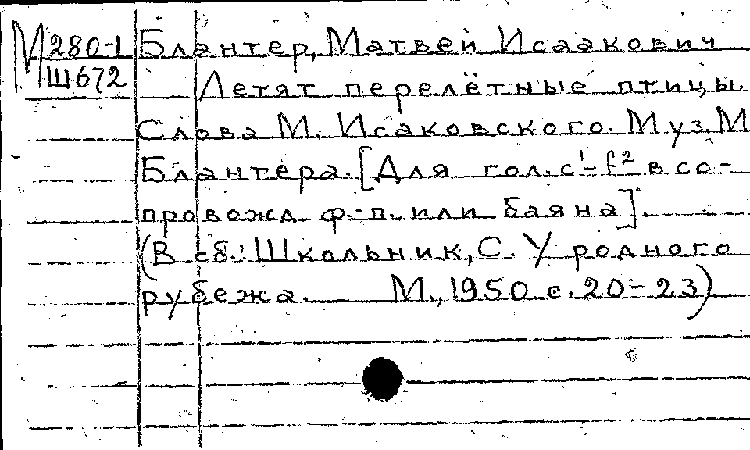 М 280-1 Блантер, Матвей Исаакович
Ш672 Летят перелётные птицы.
Слова М. Исаковского. Муз. М
Блантера. [Для гол. c¹-f² в со-
провожд. ф-п. или баяна].
(В сб.: Школьник, С. У родного
рубежа. М., 1950 с. 20-23)